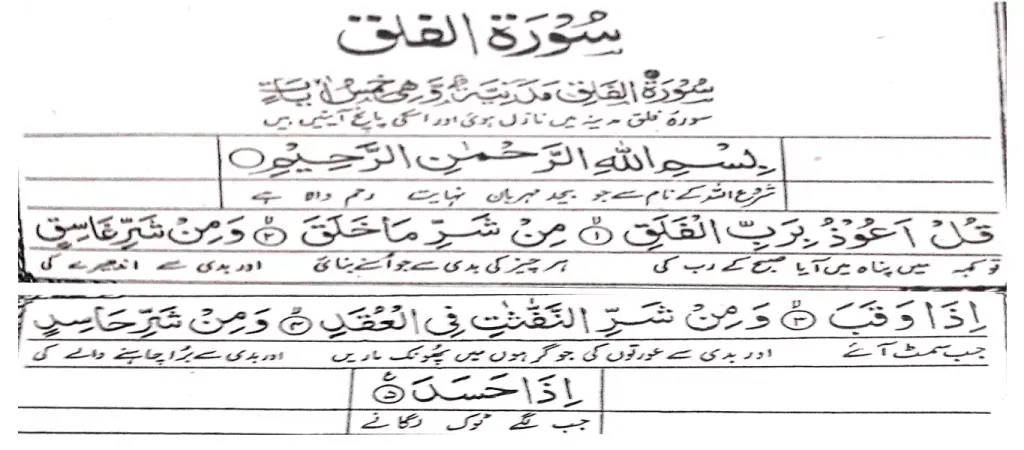 سُوْرَةُ الفلق
سُوْرَةُ الْفَلَقِ مَدَنِيَّةٌ وَّهِيَ خَمْسُ اٰيَاتٍ
سورۃ فلق مدینہ میں نازل ہوئی اور اسکی پانچ آیتیں ہیں
بِسْمِ اللّٰهِ الرَّحْمٰنِ الرَّحِيْمِ ○
شروع اللہ کے نام سے جو بیحد مہربان نہایت رحم والا ہے
قُلْ اَعُوْذُ بِرَبِّ الْفَلَقِ ۙ﴿۱﴾ مِنْ شَرِّ مَا خَلَقَ ۙ﴿۲﴾ وَمِنْ شَرِّ غَاسِقٍ
تو کہہ میں پناہ میں آیا صبح کے رب کی ہر چیز کی بدی سے جو اُسنے بنائی اور بدی سے اندھیرے کی
اِذَا وَقَبَ ۙ﴿۳﴾ وَمِنْ شَرِّ النَّفّٰثٰتِ فِي الْعُقَدِ ۙ﴿۴﴾ وَمِنْ شَرِّ حَاسِدٍ
جب سمٹ آئے اور بدی سے عورتوں کی جو گرہوں میں پھونک ماریں اور بدی سے برا چاہنے والے کی
اِذَا حَسَدَ ﴿۵﴾ ع
جب لگے ٹوک لگانے